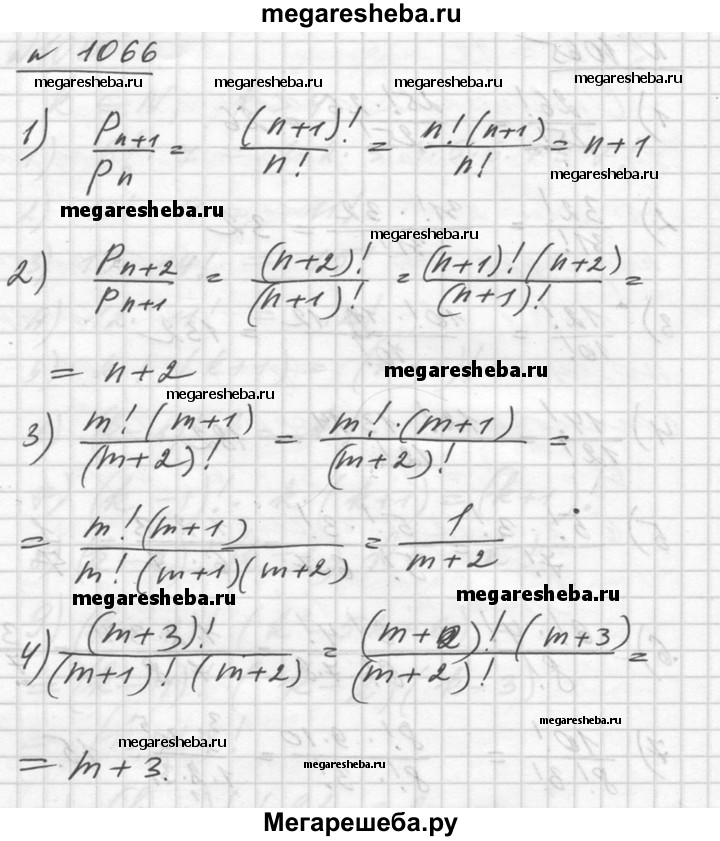 megaresheba.ru
№ 1066
megaresheba.ru megaresheba.ru megaresheba.ru megaresheba.ru
1) P_{n+1}/P_n = (n+1)!/n! = n!(n+1)/n! = n+1
megaresheba.ru
megaresheba.ru
megaresheba.ru
2) P_{n+2}/P_{n+1} = (n+2)!/(n+1)! = (n+1)!(n+2)/(n+1)! =
= n+2
megaresheba.ru
megaresheba.ru
3) m!(m+1)/(m+2)! = m!·(m+1)/(m+2)! =
= m!(m+1)/m!(m+1)(m+2) = 1/m+2
megaresheba.ru megaresheba.ru
4) (m+3)!/(m+1)!(m+2) = (m+2)!(m+3)/(m+2)! =
megaresheba.ru
megaresheba.ru
= m+3.
megaresheba.ru
Мегарешеба.ру